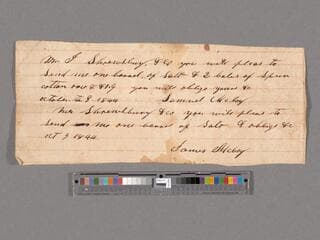 Mr J Shrewlbury, & Co you will pleas to
send me one barrel of Salt & 2 bales of Spun
cotton you will oblige yours &c
october 9 1844 Samuel
Mr Shrewlbury & co you will pleas to
send me one barrel of Salt & oblige &c
oct 9 1844
James